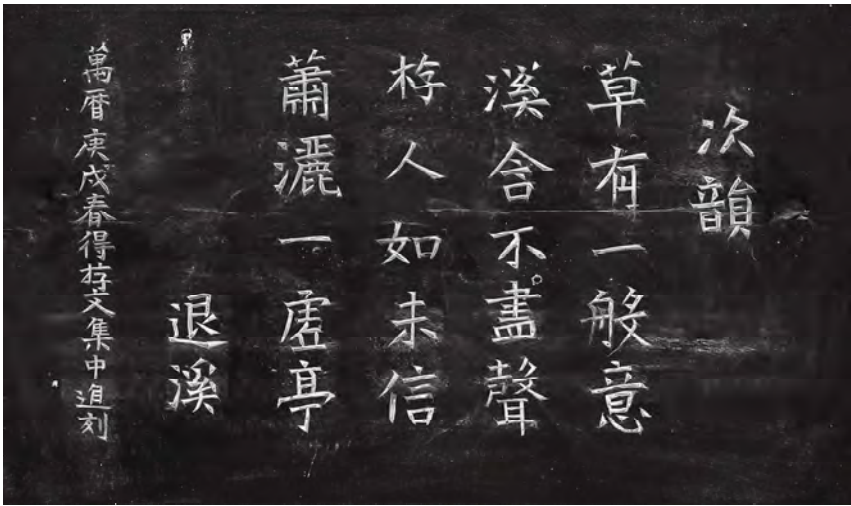 次韻
草有一般意
溪含不盡聲
斿人如未信
蕭灑一虛亭
退溪
萬曆庚戌春得扵文集中追刻